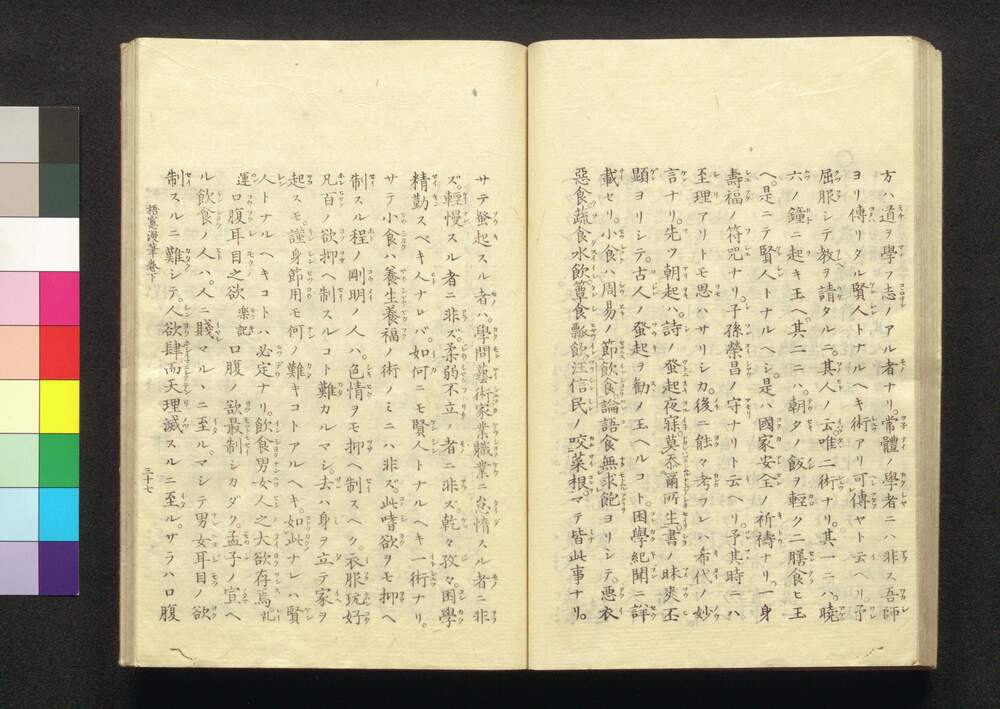 方ハ道ヲ學フ志ノアル者ナリ。常體ノ學者ニハ非ス吾師
ヨリ傳リタル賢人トナルヘキ術アリ可傳ヤト云ヘリ予
屈服シテ教ヲ請タルニ。其人ノ云唯二術ナリ。其一ニハ。曉
六ノ鐘ニ起キ玉ヘ。其二ニハ。朝夕ノ飯ヲ輕ク二膳食ヒ玉
ヘ。是ニテ賢人トナルヘシ。是ハ國家安全ノ祈禱ナリ。一身
壽福ノ符咒ナリ。子孫榮昌ノ守ナリト云ヘリ。予其時ニハ
至理アリトモ思ハサリシカ。後ニ能々考フレハ希代ノ妙
言ナリ。先ツ朝起ハ。詩ノ蚤起夜寐莫忝爾所生書ノ昧爽丕
顕ヨリシテ。古人ノ蚤起ヲ勸ノ玉ヘルコト。困學紀聞ニ詳
載セリ。小食ハ周易ノ節飲食論語食無求飽ヨリシテ。悪衣
惡食。蔬食水飲簞食瓢飲汪信民ノ咬菜根。マテ皆此事ナリ。
サテ蚤起スル者ハ。學問藝術家業職業ニ怠惰スル者ニ非
ズ。輕慢スル者ニ非ズ。柔弱不立ノ者ニ非ズ。乾々孜々。困學
精勤スベキ人ナレバ。如何ニモ賢人トナルヘキ一術ナリ。
サテ小食ハ養生養福ノ術ノミニハ非ズ。此嗜欲ヲモ抑ヘ
制スル程ノ剛明ノ人ハ。色情ヲモ抑ヘ制スヘク。衣服玩好
凡百ノ欲抑ヘ制スルコト難カルマシ。去ハ身ヲ立テ家ヲ
起スモ。謹身節用モ何ノ難キコトアルヘキ。如此ナレハ賢
人トナルヘキコトハ必定ナリ。飲食男女人之大欲存焉礼
運口腹耳目之欲樂記口腹ノ欲最制シカダク。孟子ノ宣ヘ
ル飲食ノ人ハ。人ニ賤マルヽニ至ル。マシテ男女耳目ノ欲
制スルニ難シテ。人欲肆而天理滅スルニ至ル。サラハ口腹
梧窓漫筆卷下
三十七